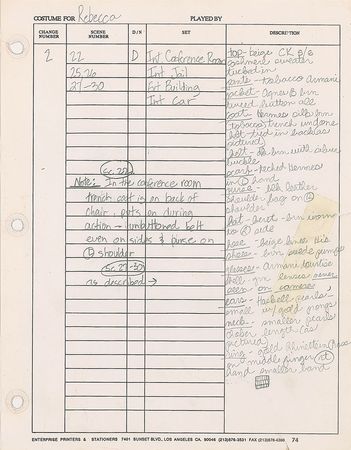 COSTUME FOR Rebecca PLAYED BY
CHANGE NUMBER SCENE NUMBER D/N SET DESCRIPTION
2 22 D Int Conference Room
25,26 Int Jail
27-30 Ext Building
Int Car
Sc. 22
Note: In the conference room
trench coat is on back of
chair, puts on during
action - unbuttoned belt
even on sides & purse on
shoulder
Sc. 27-30
as described →
top - beige CK s/s
cashmere sweater
tucked in
pants - tobacco Armani
jacket - Agnes B brn
tweed button all
coat - Hermes silk brn
tobacco trench undone
belt tied in back (as
pictured)
belt - brn with silver
buckle
scarf - Hermes
in hand
purse - blk leather
shoulder bag on
shoulder
hat - beret - brn worn
to side
hose - beige knee his
shoes - brn suede pumps
glasses - Armani tortise
shell - grn lenses never
seen on camera
ears - Haskell pearls -
small w/ gold prongs
neck - smaller pearls
choker length (as
pictured)
ring - gold Rhinestone
on middle finger rt
hand smaller band
ENTERPRISE PRINTERS & STATIONERS 7401 SUNSET BLVD., LOS ANGELES CA. 90046 (213)876-3531 FAX (213)876-4398 74